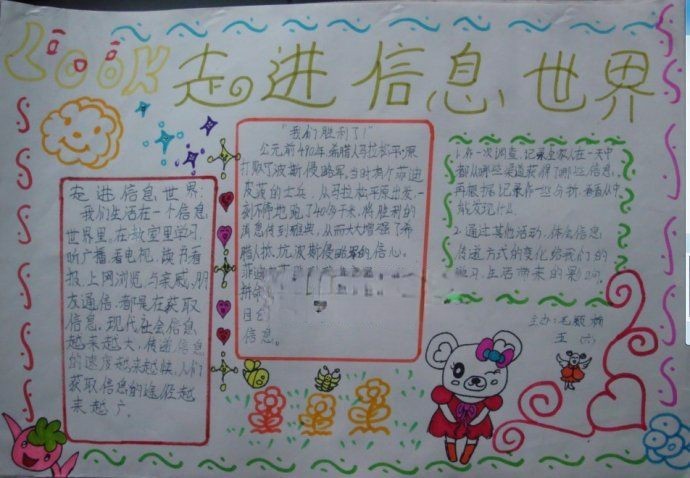 LOOK 走进信息世界
走进信息世界:
我们生活在一个信息
世界里。在教室里学习、
听广播、看电视、读书看
报、上网浏览、与亲戚、朋
友通信,都是在获取
信息。现代社会信息
越来越大,传递信息
的速度越来越快,人们
获取信息的途径越
来越广。
"我们胜利了!"
公元前490年,希腊人马拉松平原
打败了波斯侵略军,当时
的士兵,从马拉松平原出发,一
刻不停地跑了40多千米,将胜利的
消息传到雅典,从而大大增强了希
腊人抵抗波斯侵略军的信心。
信息。
1.作一次调查,记录全家人在一天中
都从哪些渠道获得了哪些信息,
再根据记录作一些分析,看看从中
能发现什么。
2.通过其他活动,体会信息
传递方式的变化给我们的
学习、生活带来的影响。
主办:毛颖
五(六)